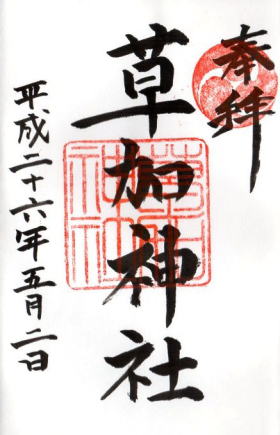 奉拝
草加神社
平成二十六年五月二日